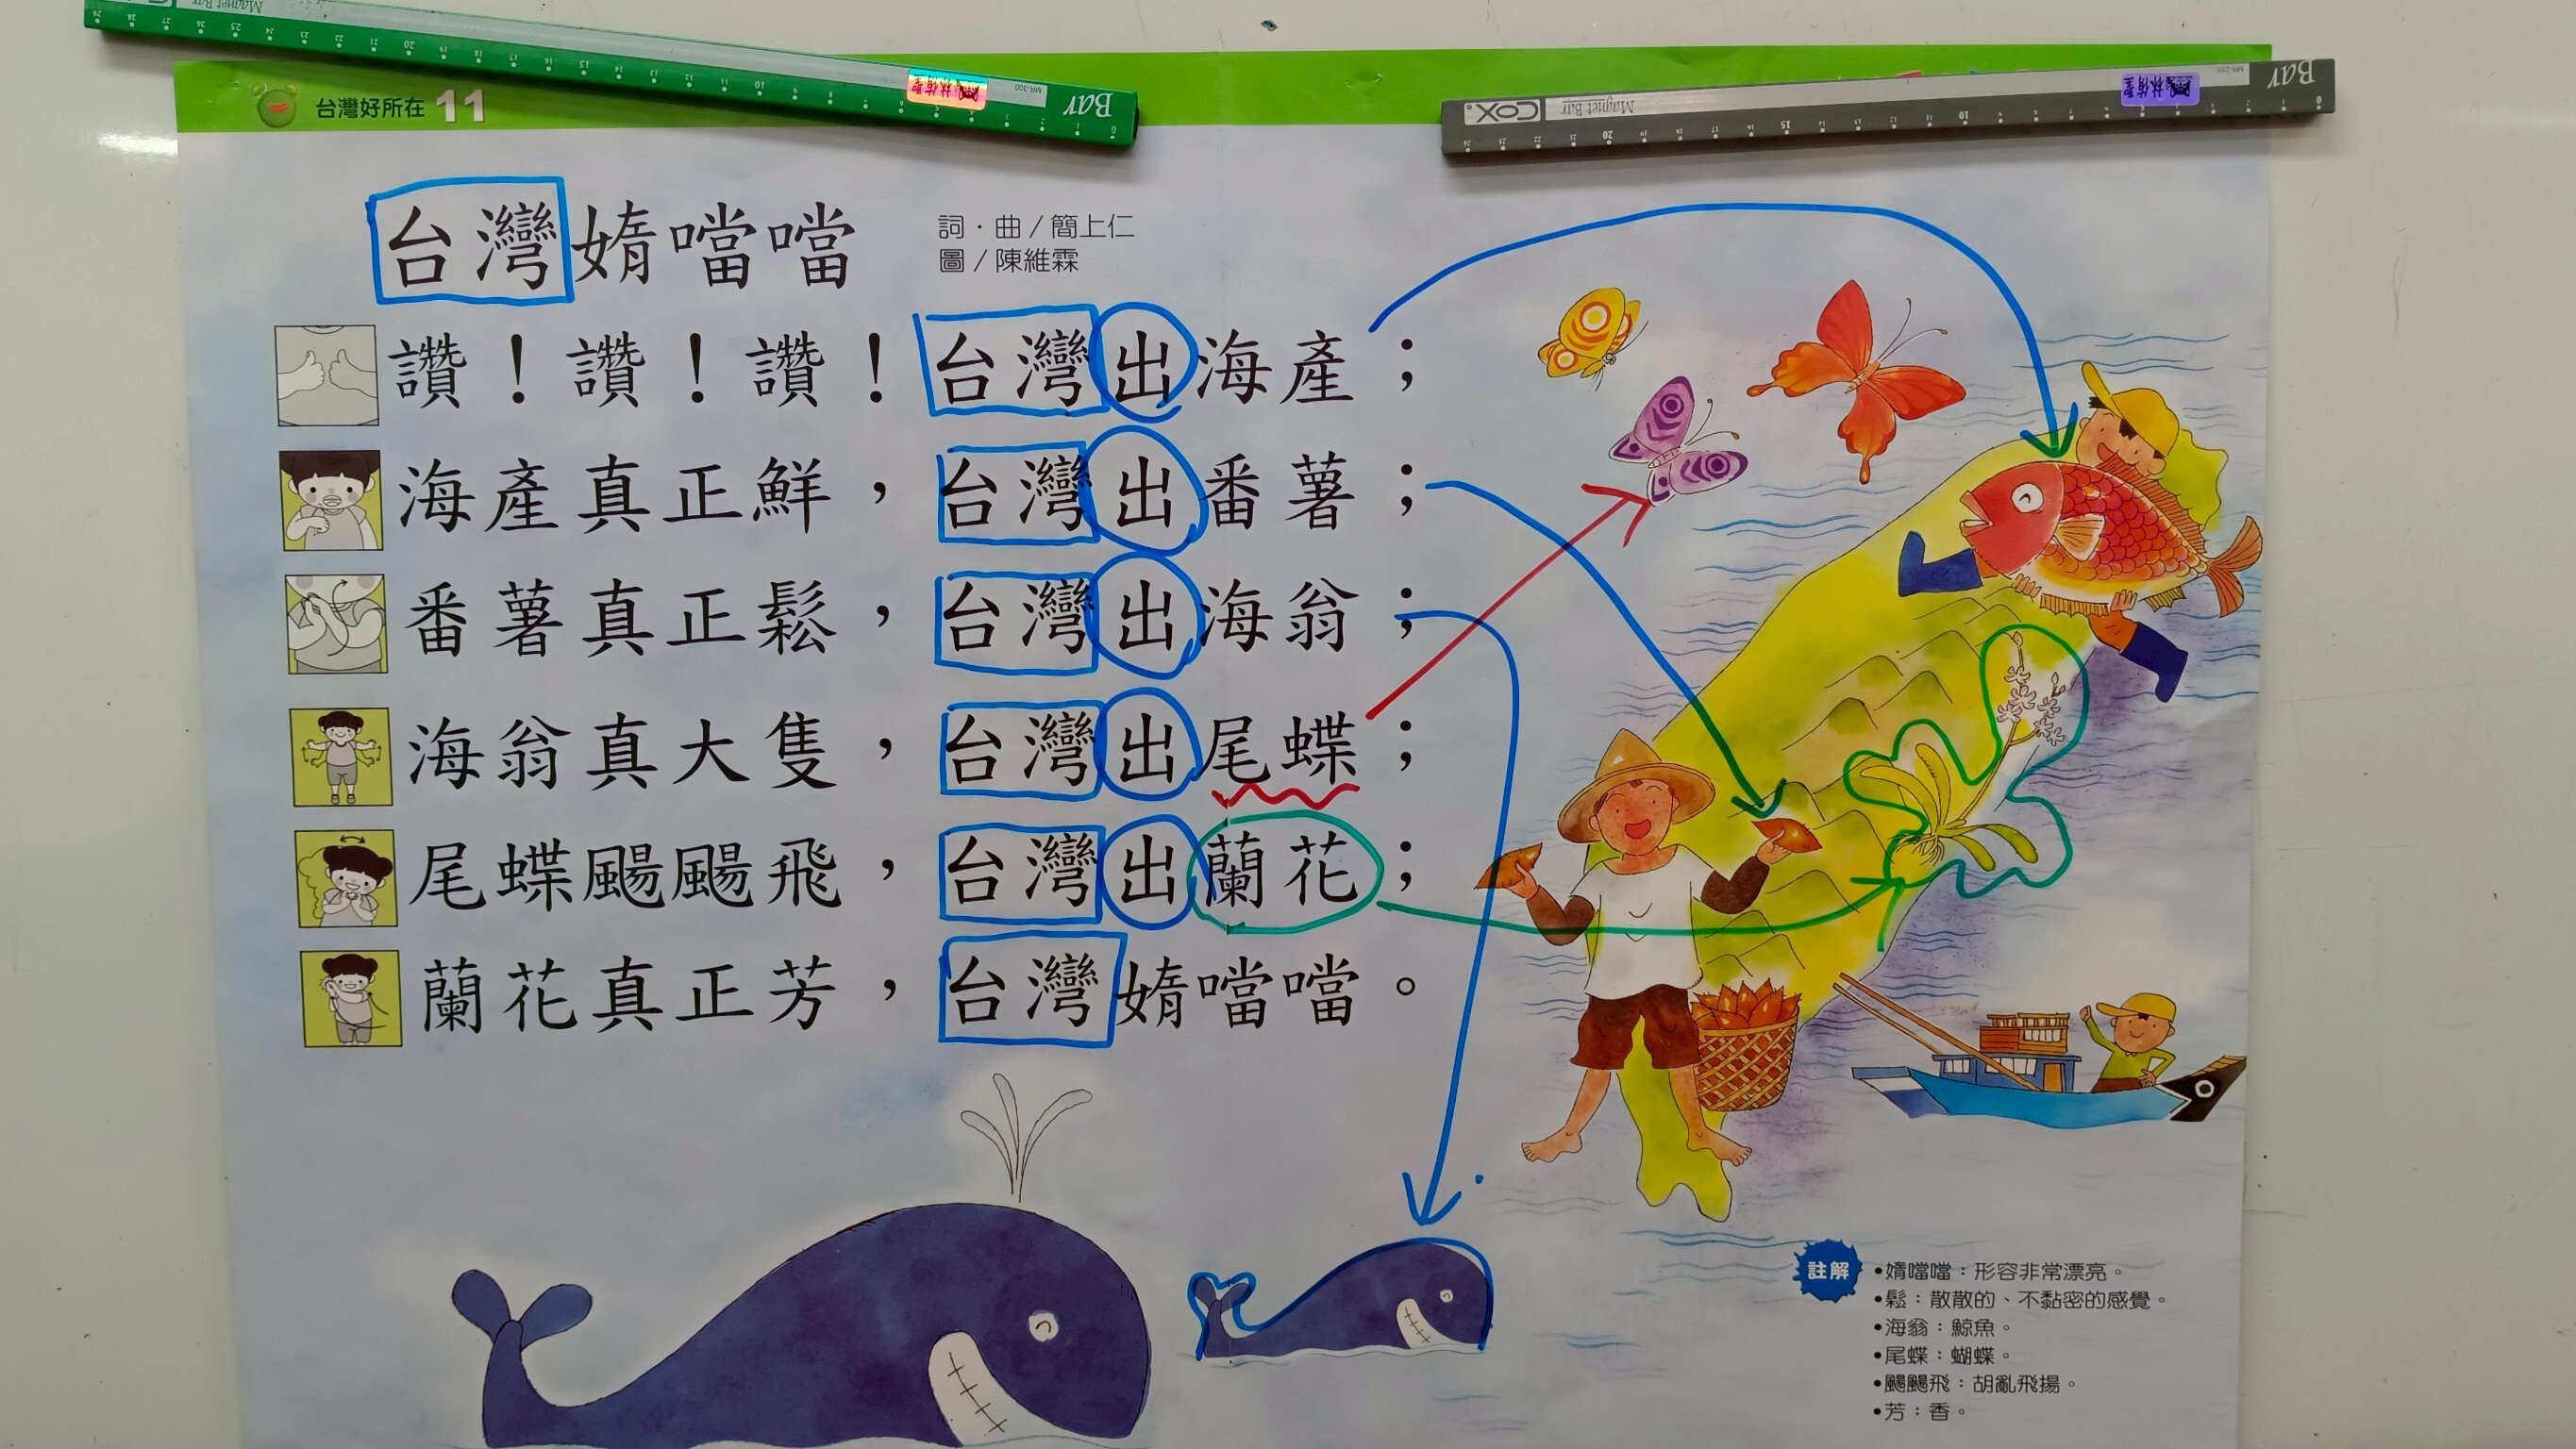 台灣好所在 11
台灣媠噹噹
詞·曲/簡上仁
圖/陳維霖
讚！讚！讚！台灣出海產；
海產真正鮮，台灣出番薯；
番薯真正鬆，台灣出海翁；
海翁真大隻，台灣出尾蝶；
尾蝶颺颺飛，台灣出蘭花；
蘭花真正芳，台灣媠噹噹。
註解
•媠噹噹：形容非常漂亮。
•鬆：散散的、不黏密的感覺。
•海翁：鯨魚。
•尾蝶：蝴蝶。
•颺颺飛：胡亂飛揚。
•芳：香。
Magnet Bar
MR-300
Bar
COX
Magnet Bar
Bar